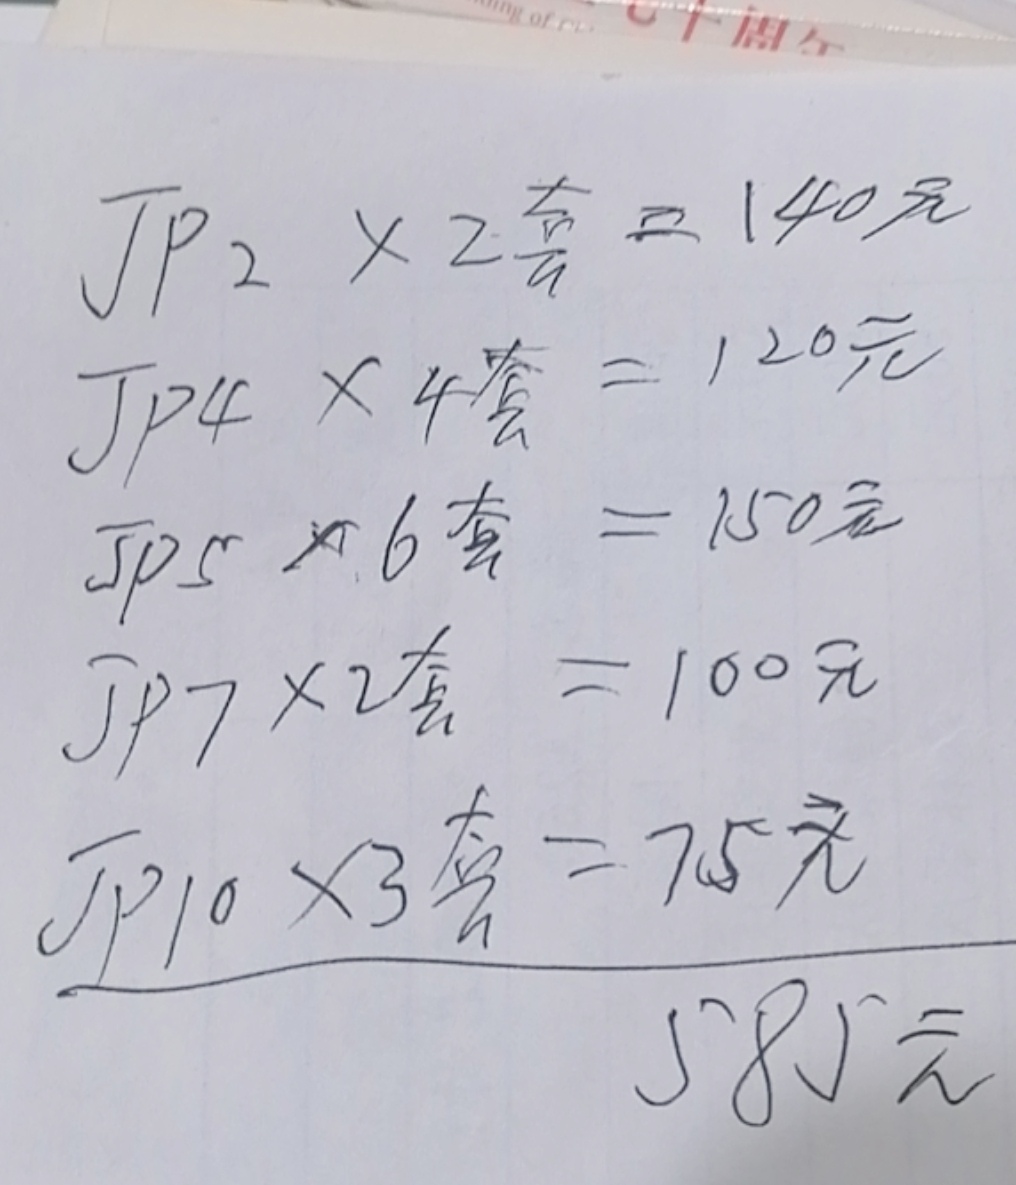 七十周年
JP2 × 2套 = 140元
JP4 × 4套 = 120元
JP5 × 6套 = 150元
JP7 × 2套 = 100元
JP10 × 3套 = 75元
585元